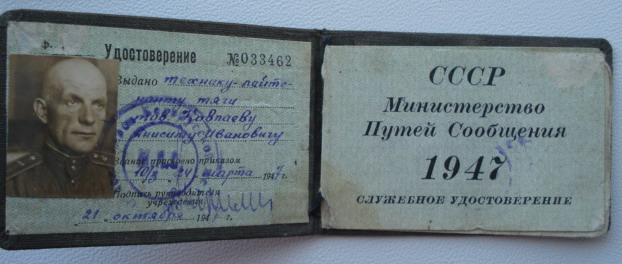 Удостоверение №033462
Выдано технику-лейте-
нанту тяги
Ивановичу
Звание присвоено приказом
марта 194 г.
Подпись руководителя
учреждения
21 октября 194 г.
СССР
Министерство
Путей Сообщения
1947
СЛУЖЕБНОЕ УДОСТОВЕРЕНИЕ